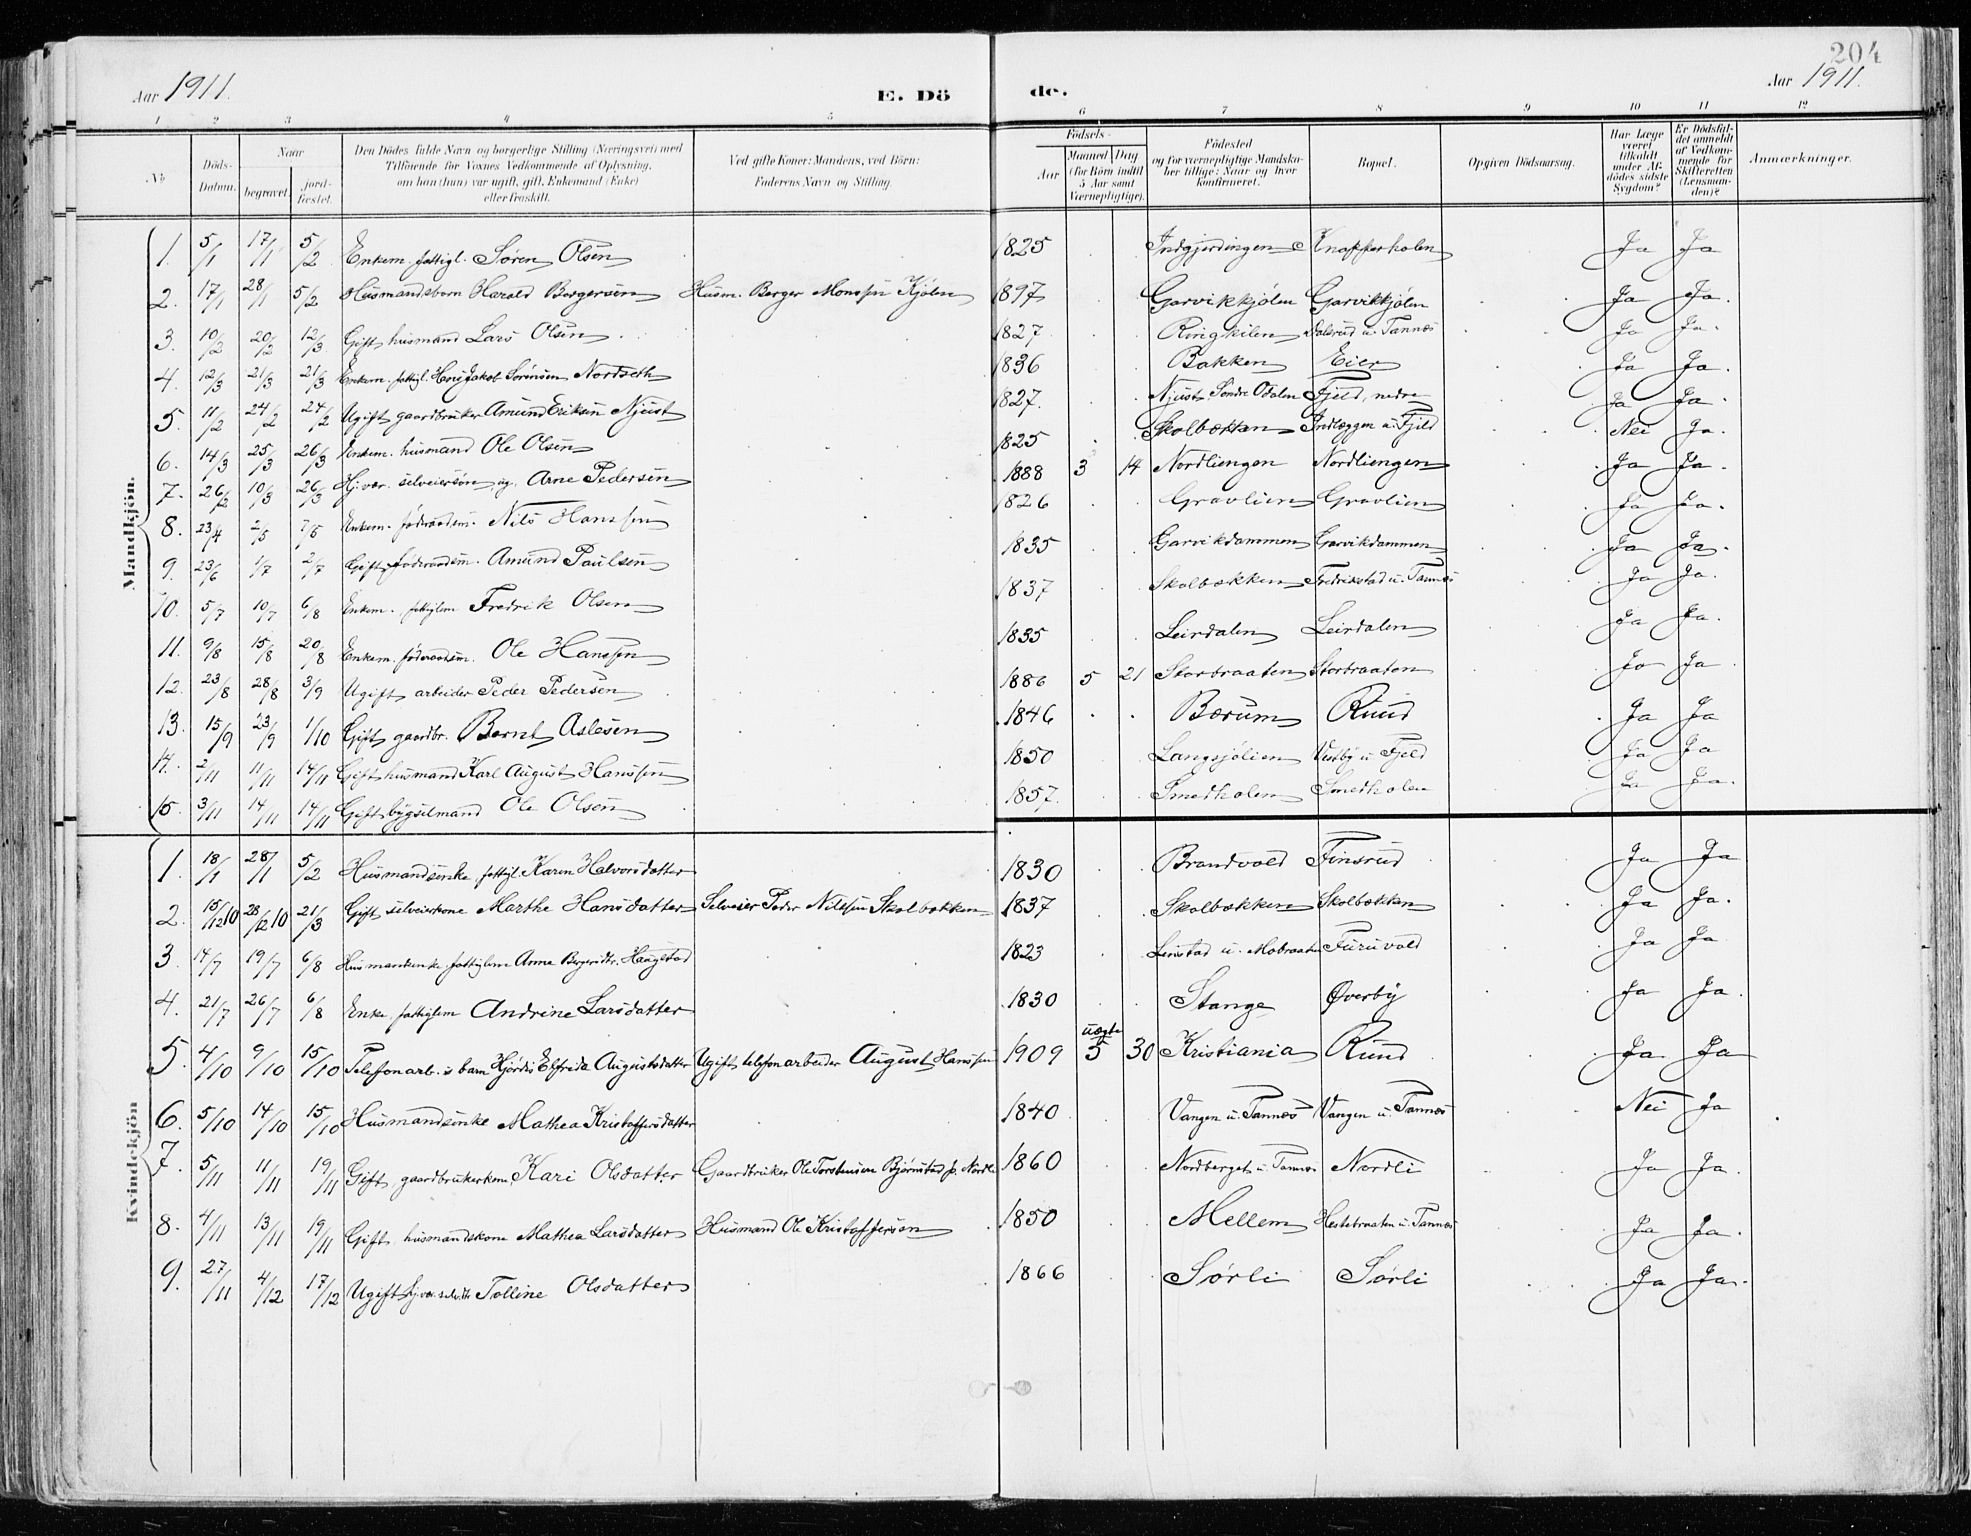 204
Aar 1911.
E. Dö
de.
Aar 1911.
1 2 3 4 5 6 7 8 9 10 11 12
No
Döds-Datum.
Naar
begravet.
jordfæstet.
Den Dödes fulde Navn og borgerlige Stilling (Næringsvei) med
Tilföiende for Voxnes Vedkommende af Oplysning,
om han (hun) var ugift, gift, Enkemand (Enke)
eller fraskilt.
Ved gifte Koner: Mandens, ved Börn:
Faderens Navn og Stilling.
Födsels-
Aar
Maaned Dag
(for Börn indtil
5 Aar samt
Værnepligtige).
Födested
og for værnepligtige Mandskaber tillige: Naar og hvor konfirmeret.
Bopæl.
Opgiven Dödsaarsag.
Har Læge været tilkaldt under Afdödes sidste Sygdom?
Er Dödsfaldet anmeldt af Vedkommende for Skifteretten (Lensmanden)?
Anmærkninger.
Mandkjön.
1. 5/1 17/1 5/2 Enkem. fattigl. Sören Olsen 1825 Indgjerdingen Knapperholen Ja Ja
2. 17/1 28/1 5/2 Husmandsbarn Harald Bergersen Husm. Berger Monssen Kjölen 1897 Garvikkjölen Garvikkjölen Ja Ja.
3. 10/2 20/2 12/3 Gift husmand Lars Olsen 1827 Ringkilen Dalsrud u. Tannæs Ja Ja.
4. 12/3 21/3 21/3 Enkem. fattigl. Hans Jakob Sörensen Nordseth 1836 Bakken Eier Ja Ja.
5. 11/2 24/2 24/2 Ugift gaardbruker Amund Eriksen Njust 1827. Njust, Söndre Odalen Fjeld, nedre Ja Ja.
6. 14/3 25/3 26/3 Enkem. husmand Ole Olsen 1825 Skolbækken Indlæggen u. Fjeld Nei Ja.
7. 26/2 10/3 26/3 Hj.vær. selveiersön, ug. Arne Pedersen 1888 3 14 Nordliengen Nordliengen Ja Ja.
8. 23/4 2/5 7/5 Enkem. föderaadsm. Nils Hanssen 1826 Gravlien Gravlien Ja Ja.
9. 23/6 1/7 2/7 Gift föderaadsm. Amund Paulsen 1835 Garvikdammen Garvikdammen Ja Ja.
10. 5/7 10/7 6/8 Enkem. fattiglem Fredrik Olsen 1837 Skolbækken Fredrikstad u. Tannæs Ja Ja.
11. 9/8 15/8 20/8 Enkem. föderaadsm. Ole Hanssen 1835 Leirdalen Leirdalen Ja Ja.
12. 23/8 28/8 3/9 Ugift arbeider Peder Pedersen 1886 5 21 Storbraaten Storbraaten Ja Ja
13. 15/9 23/9 1/10 Gift gaardbr. Bernt Aslesen 1846 Bærum Ruud Ja Ja
14. 2/11 11/11 14/11 Gift husmand Karl August Hanssen 1850 Langsjölien Vestby u. Fjeld Ja Ja
15. 3/11 14/11 14/11 Gift bygselmand Ole Olsen 1857. Smedholen Smedholen Ja Ja.
Kvindekjön
1. 18/1 28/1 5/2 Husmandsenke fattigl. Karen Halvorsdatter 1830 Brandvold Finsrud Ja Ja
2. 15/12 10 28/12 10 21/3 Gift selveierkone Marthe Hansdatter Selveier Peder Nilssen Skolbækken 1837 Skolbækken Skolbækken Ja Ja.
3. 14/7 19/7 6/8 Husmandsenke fattiglem Anne Bergersdtr. Haugstad 1823 u. Mobraaten Furuvold Ja Ja
4. 21/7 26/7 6/8 Enke fattiglem Andrine Larsdatter 1830 Stange Øverby Ja Ja.
5. 4/10 9/10 15/10 Telefonarb.s barn Hjördis Elfrida Augustsdatter Ugift telefonarbeider August Hanssen 1909 uægte 5 30 Kristiania Ruud Ja Ja
6. 5/10 14/10 15/10 Husmandsenke Mathea Kristoffersdatter 1840 Vangen u. Tannæs Vangen u. Tannæs Nei Ja
7. 5/11 11/11 19/11 Gift gaardbrukerkone Kari Olsdatter Gaardbruker Ole Torstensen Björnstad p. Nordli 1860 Nordberget u. Tannæs Nordli Ja Ja.
8. 4/11 13/11 19/11 Gift husmandskone Mathea Larsdatter Husmand Ole Kristoffersen 1850 Mellem Hestebraaten u. Tannæs Ja Ja.
9. 27/11 4/12 17/12 Ugift hj.vær. selv.dtr. Tolline Olsdatter 1866 Sörli Sörli Ja Ja.